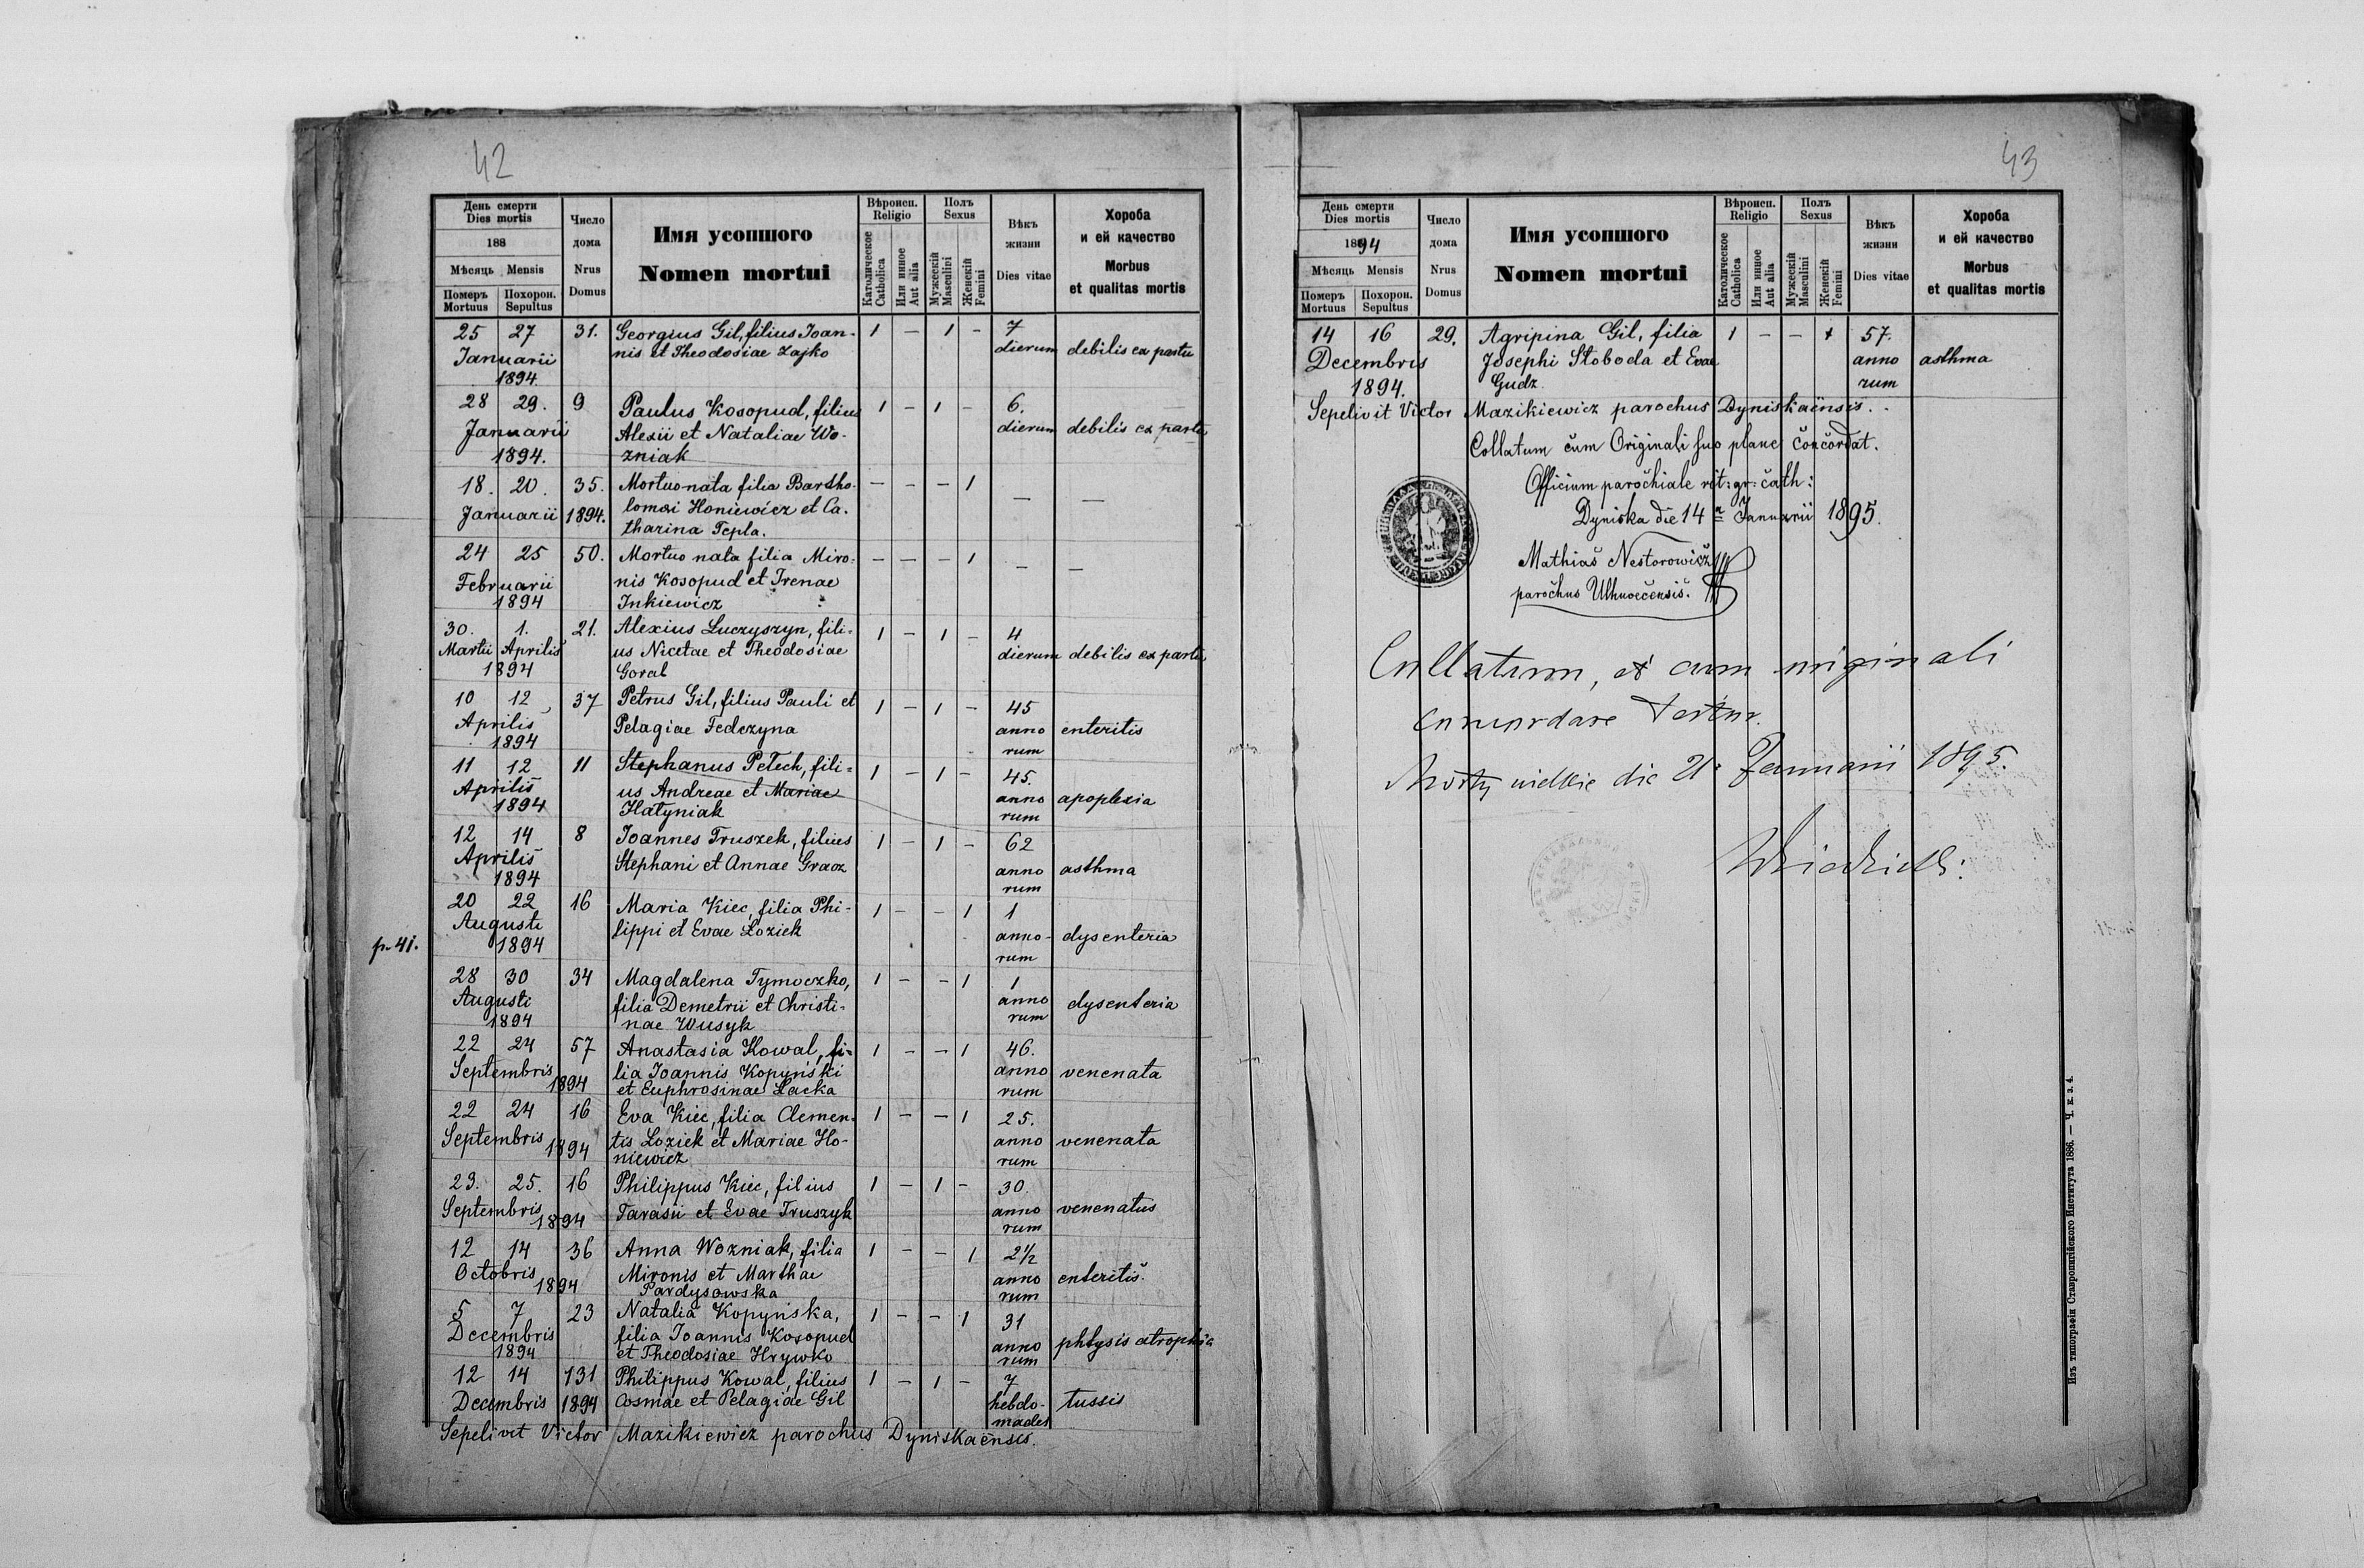 42
День смерти
Dies mortis
188
Мѣсяць Mensis
Померъ Похорон.
Mortuus Sepultus
Число
дома
Nrus
Domus
Имя усопшого
Nomen mortui
Вѣроисп.
Religio
Католическое
Catholica
Или инное
Aut alia
Полъ
Sexus
Мужескій
Masculini
Женскій
Femini
Вѣкъ
жизни
Dies vitae
Хороба
и ей качество
Morbus
et qualitas mortis
25 27 31. Georgius Gil, filius Joan- 1 – 1 – 7
Januarii nis et Theodosiae Zajko dierum debilis ex partu
1894.
28 29. 9 Paulus Kosopud, filius 1 – 1 – 6.
Januarii Alexii et Nataliae Wo- dierum debilis ex partu
1894. zniak
18. 20. 35. Mortuo nata filia Bartho- – – – 1 — —
Januarii 1894. lomei Honiewicz et Ca-
tharina Tepla.
24 25 50. Mortuo nata filia Miro- – – – 1 — —
Februarii nis Kosopud et Irenae
1894 Inkiewicz
30. 1. 21. Alexius Luczyszyn, fili- 1 – 1 – 4
Martii Aprilis us Nicetae et Theodosiae dierum debilis ex partu
1894 Goral
10 12 37 Petrus Gil, filius Pauli et 1 – 1 – 45
Aprilis Pelagiae Fedczyna anno enteritis
1894 rum
11 12 11 Stephanus Petech, fili- 1 – 1 – 45.
Aprilis us Andreae et Mariae anno apoplexia
1894 Hatyniak rum
12 14 8 Joannes Truszek, filius 1 – 1 – 62
Aprilis Stephani et Annae anno asthma
1894 rum
20 22 16 Maria Kiec, filia Phi- 1 – – 1 1
Augusti lippi et Evae Loziek anno- dysenteria
p. 41. 1894 rum
28 30 34 Magdalena Tymoczko, 1 – – 1 1
Augusti filia Demetrii et Christi- anno dysenteria
1894 nae Wusyk rum
22 24 57 Anastasia Kowal, fi- 1 – – 1 46.
Septembris lia Joannis Kopyński anno venenata
1894 et Euphrosinae Lacka rum
22 24 16 Eva Kiec, filia Clemen- 1 – – 1 25.
Septembris tis Loziek et Mariae Ho- anno venenata
1894 niewicz rum
23. 25. 16 Philippus Kiec, filius 1 – 1 – 30.
Septembris Tarasii et Evae Truszyk anno venenatus
1894 rum
12 14 36 Anna Wozniak, filia 1 – – 1 2½
Octobris Mironis et Marthae anno enteritis.
1894 Pardysowska rum
5 7 23 Natalia Kopyńska, 1 – – 1 31
Decembris filia Joannis Kosopud anno phtysis atrophia
1894 et Theodosiae Hrywko rum
12 14 131 Philippus Kowal, filius 1 – 1 – 7
Decembris 1894 Cosmae et Pelagiae Gil hebdo- tussis
mades
Sepelivit Victor Mazikiewicz parochus Dyniskaënsis.
43
День смерти
Dies mortis
1894
Мѣсяць Mensis
Померъ Похорон.
Mortuus Sepultus
Число
дома
Nrus
Domus
Имя усопшого
Nomen mortui
Вѣроисп.
Religio
Католическое
Catholica
Или инное
Aut alia
Полъ
Sexus
Мужескій
Masculini
Женскій
Femini
Вѣкъ
жизни
Dies vitae
Хороба
и ей качество
Morbus
et qualitas mortis
14 16 29. Agripina Gil, filia 1 – – 1 57.
Decembris Josephi Stoboda et Evae anno asthma
1894. Gudz. rum
Sepelivit Victor Mazikiewicz parochus Dyniskaënsis.
Collatum cum Originali suo plane concordat.
Officium parochiale rit: gr: cath:
Dyniska die 14 Januarii 1895.
Mathias Nestorowicz
parochus Uhnoecensis.
Collatum, et cum originali
concordare
Mosty wielkie die 21 Januarii 1895.
Изъ типографіи Ставропигійского Института 1886. — Ч. к. з. 4.